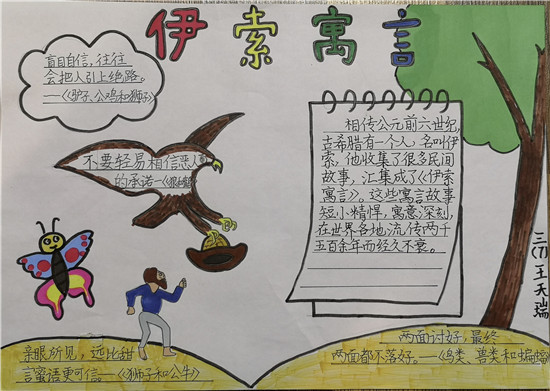 伊索寓言
盲目自信，往往
会把人引上绝路。
——《驴子、公鸡和狮子》
不要轻易相信恶人
的承诺——
相传公元前六世纪，
古希腊有一个人，名叫伊
索，他收集了很多民间
故事，汇集成了《伊索
寓言》。这些寓言故事
短小精悍，寓意深刻，
在世界各地流传两千
五百余年而经久不衰。
三(7)王天瑞
亲眼所见，远比甜
言蜜语更可信。——《狮子和公牛》
两面讨好，最终
两面都不落好。——《鸟类、兽类和蝙蝠》